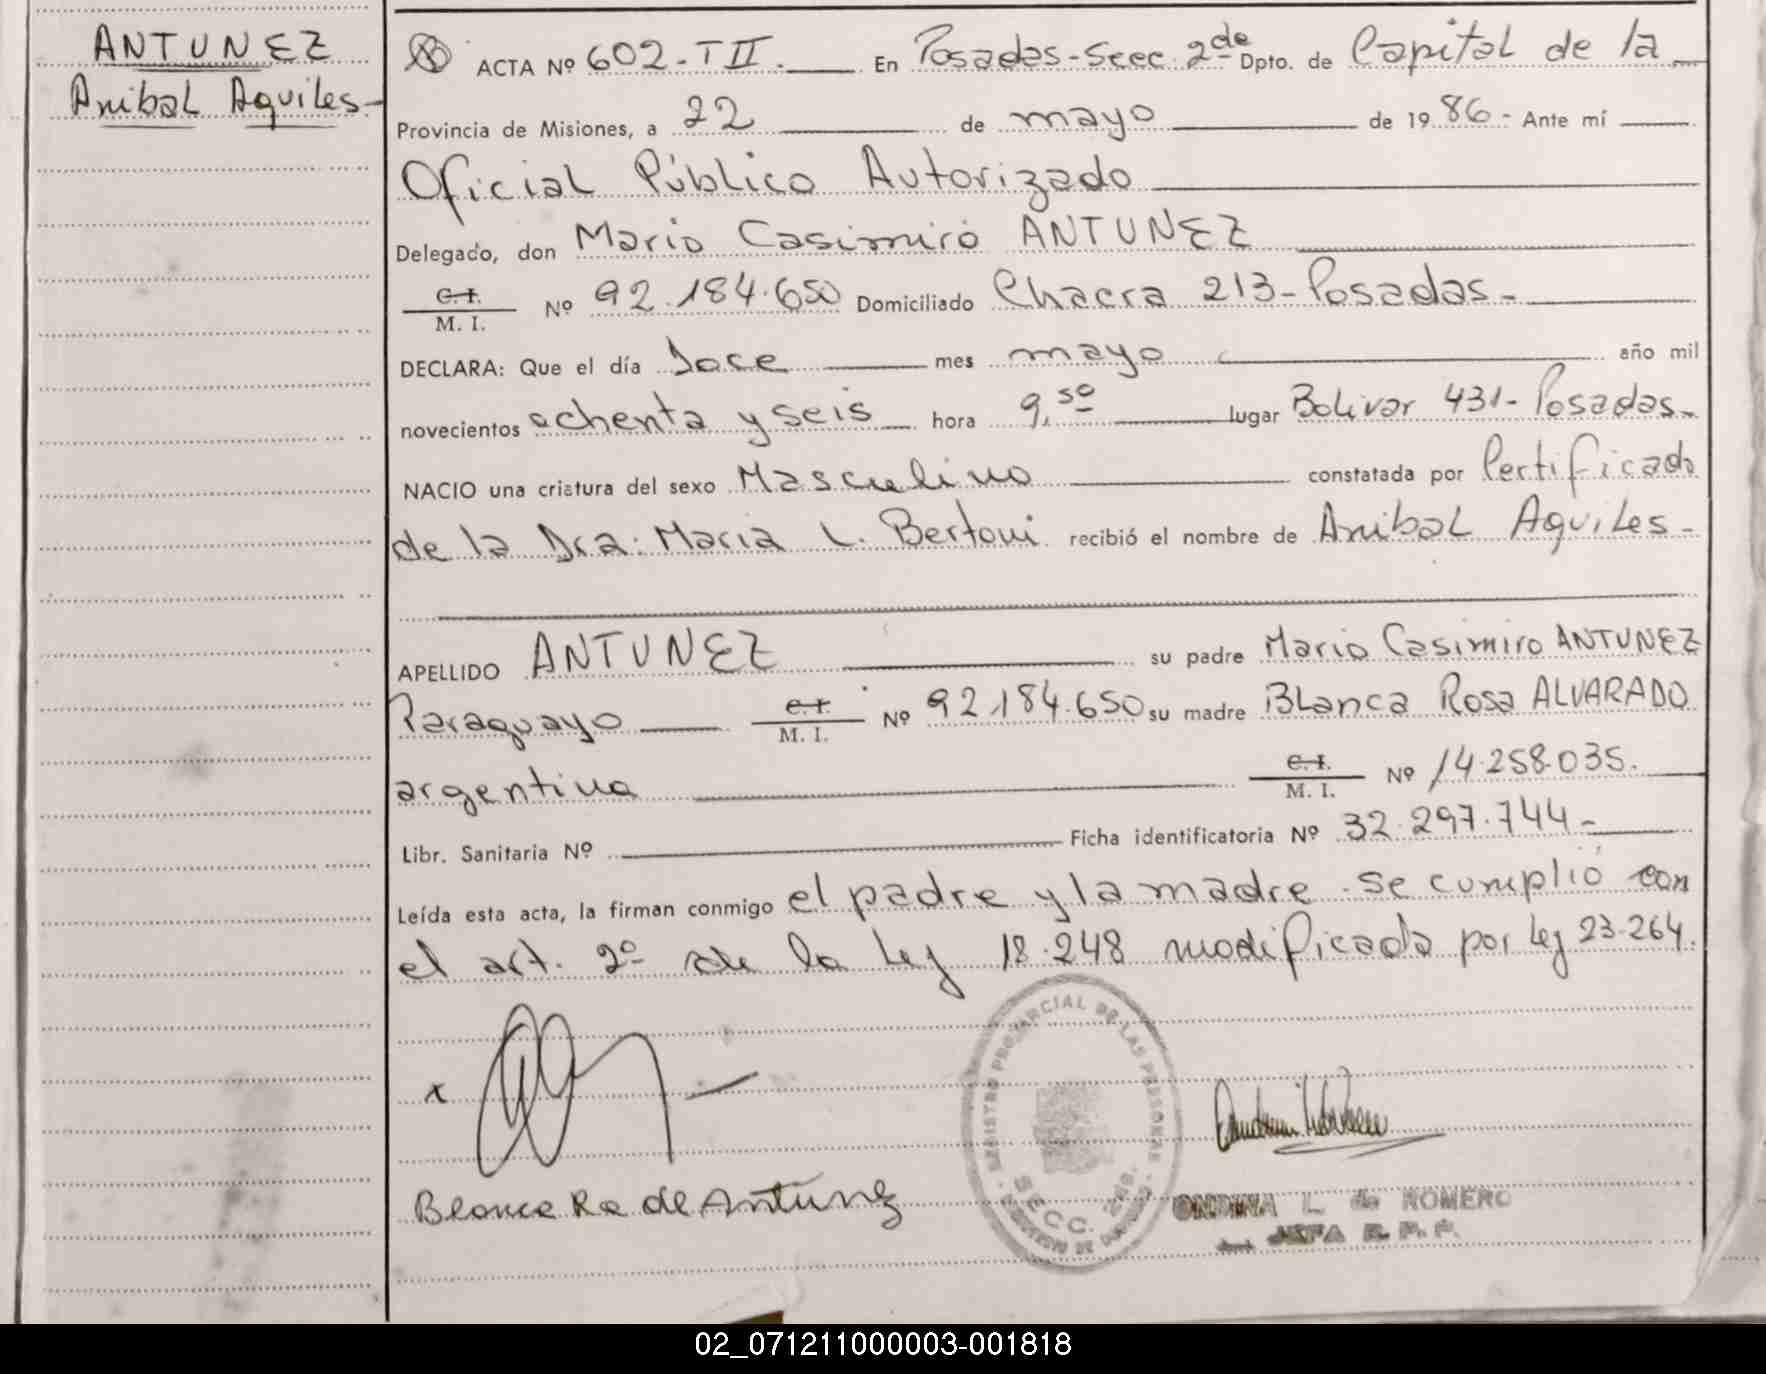 ANTUNEZ
Anibal Aquiles-
ACTA Nº 602-T II. En Posadas-Secc. 2da de Dpto. de Capital de la
Provincia de Misiones, a 22 de mayo de 1986.- Ante mí
Oficial Público Autorizado
Delegado, don Mario Casimiro ANTUNEZ
C.I. / M. I. Nº 92.184.650 Domiciliado Chacra 213-Posadas-
DECLARA: Que el día doce mes mayo año mil
novecientos ochenta y seis hora 9,50 lugar Bolivar 431-Posadas-
NACIO una criatura del sexo Masculino constatada por Certificado
de la Dra: Maria L. Bertoni recibió el nombre de Anibal Aquiles-
APELLIDO ANTUNEZ su padre Mario Casimiro ANTUNEZ
Paraguayo C.I. / M. I. Nº 92.184.650 su madre Blanca Rosa ALVARADO
argentina C.I. / M. I. Nº 14.258.035.
Libr. Sanitaria Nº Ficha identificatoria Nº 32.297.744-
Leída esta acta, la firman conmigo el padre y la madre. se cumplió con
el art. 2º de la Ley 18.248 modificada por Ley 23.264.
REGISTRO PROVINCIAL DE LAS PERSONAS
SECC. 2da.
Blanca Ra de Antúnez
ONDINA L. de ROMERO
JEFA R. P. P.
02_071211000003-001818